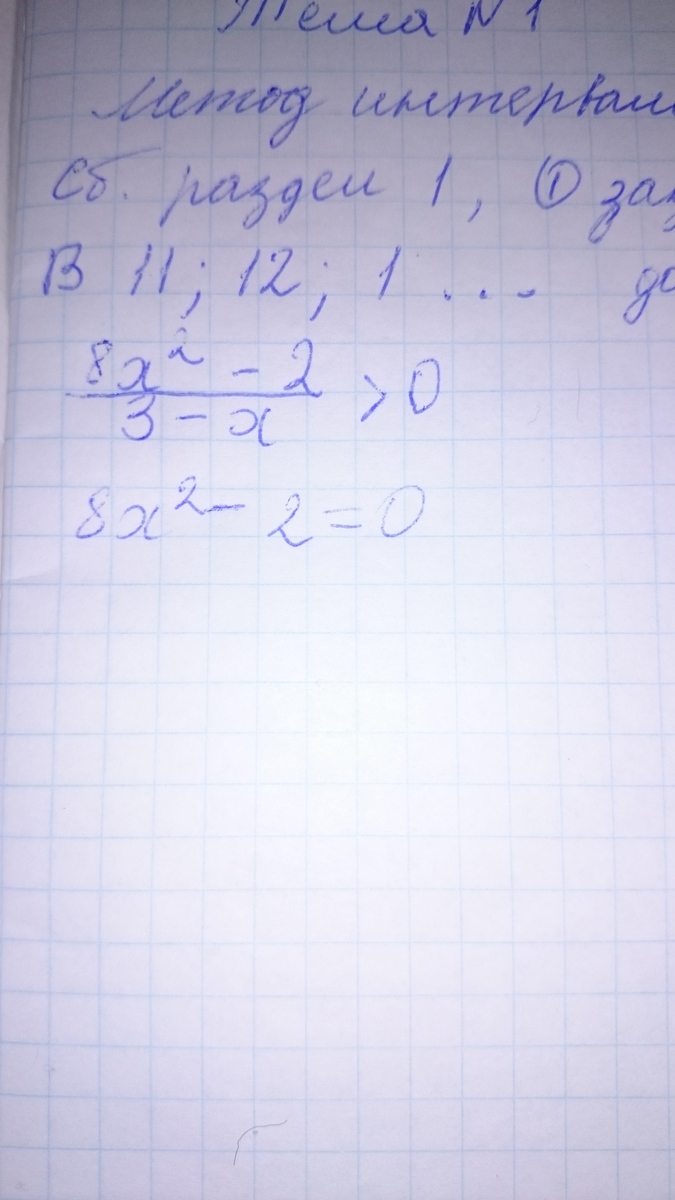 Тема N 1
Метод интервал
Сб. раздел 1, ① за
В 11; 12; 1 ... до
8x² - 2
3 - x > 0
8x² - 2 = 0